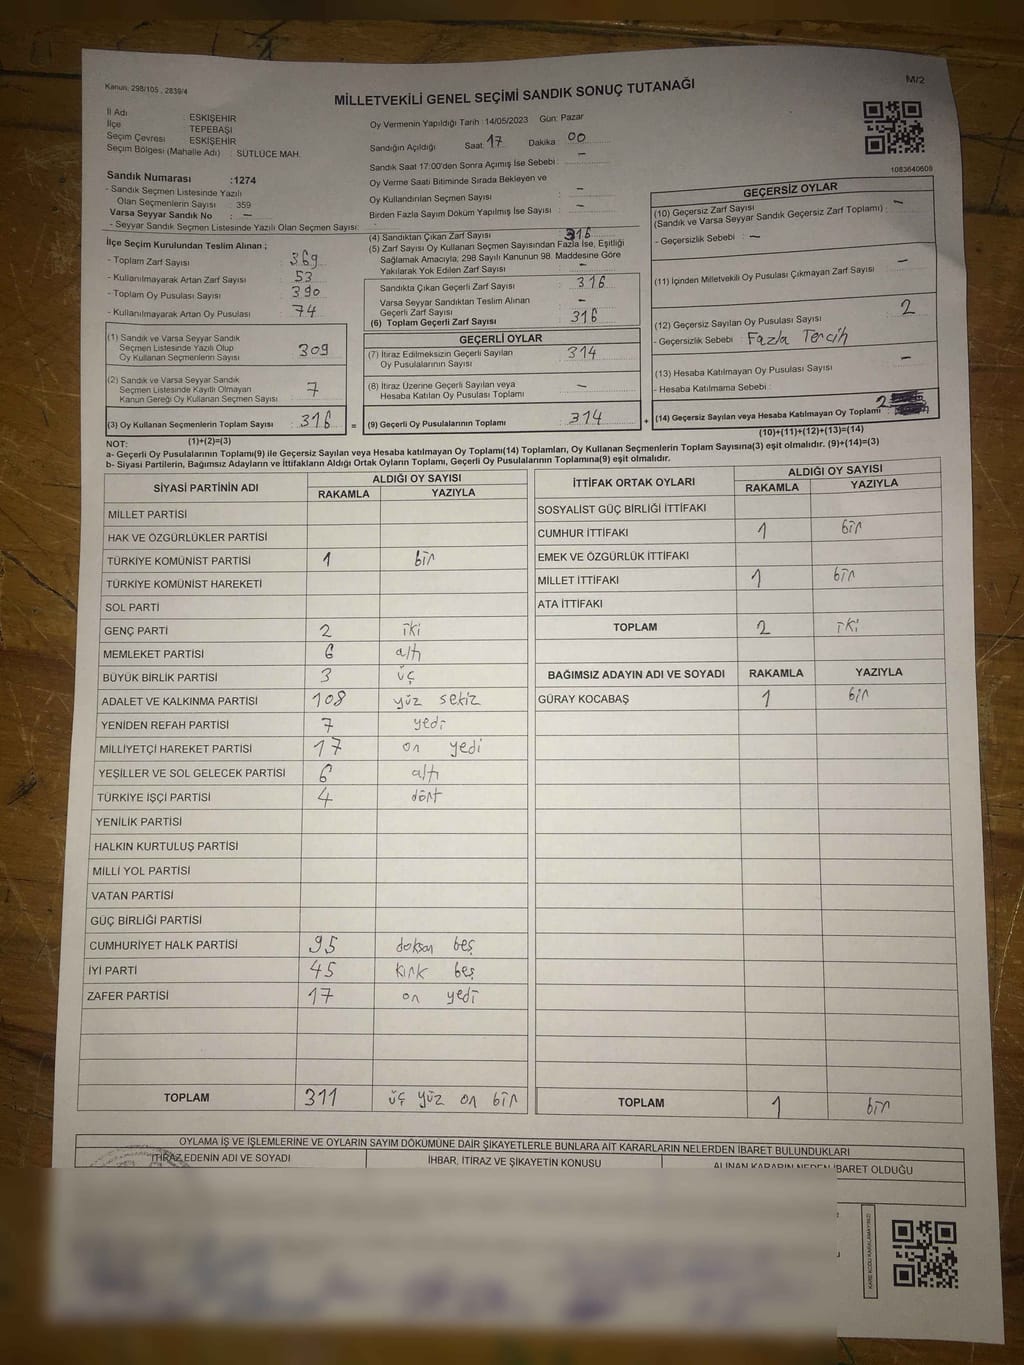 Kanun, 298/105 , 2839/4
M/2
MİLLETVEKİLİ GENEL SEÇİMİ SANDIK SONUÇ TUTANAĞI
İl Adı : ESKİŞEHİR
İlçe : TEPEBAŞI
Seçim Çevresi : ESKİŞEHİR
Seçim Bölgesi (Mahalle Adı) : SÜTLÜCE MAH.
Oy Vermenin Yapıldığı Tarih : 14/05/2023 Gün: Pazar
Sandığın Açıldığı Saat: 17 Dakika 00
Sandık Saat 17:00'den Sonra Açımış İse Sebebi : –
Oy Verme Saati Bitiminde Sırada Bekleyen ve
Oy Kullandırılan Seçmen Sayısı : –
Birden Fazla Sayım Döküm Yapılmış İse Sayısı : –
1083640608
Sandık Numarası :1274
- Sandık Seçmen Listesinde Yazılı
Olan Seçmenlerin Sayısı : 359
Varsa Seyyar Sandık No : –
- Seyyar Sandık Seçmen Listesinde Yazılı Olan Seçmen Sayısı:
İlçe Seçim Kurulundan Teslim Alınan ;
- Toplam Zarf Sayısı : 369
- Kullanılmayarak Artan Zarf Sayısı : 53
- Toplam Oy Pusulası Sayısı : 390
- Kullanılmayarak Artan Oy Pusulası : 74
(1) Sandık ve Varsa Seyyar Sandık
Seçmen Listesinde Yazılı Olup
Oy Kullanan Seçmenlerin Sayısı : 309
(2) Sandık ve Varsa Seyyar Sandık
Seçmen Listesinde Kayıtlı Olmayan
Kanun Gereği Oy Kullanan Seçmen Sayısı : 7
(3) Oy Kullanan Seçmenlerin Toplam Sayısı : 316 =
(4) Sandıktan Çıkan Zarf Sayısı : 316
(5) Zarf Sayısı Oy Kullanan Seçmen Sayısından Fazla İse, Eşitliği
Sağlamak Amacıyla; 298 Sayılı Kanunun 98. Maddesine Göre
Yakılarak Yok Edilen Zarf Sayısı : –
Sandıkta Çıkan Geçerli Zarf Sayısı : 316
Varsa Seyyar Sandıktan Teslim Alınan
Geçerli Zarf Sayısı : –
(6) Toplam Geçerli Zarf Sayısı : 316
GEÇERLİ OYLAR
(7) İtiraz Edilmeksizin Geçerli Sayılan
Oy Pusulalarının Sayısı : 314
(8) İtiraz Üzerine Geçerli Sayılan veya
Hesaba Katılan Oy Pusulası Toplamı : –
(9) Geçerli Oy Pusulalarının Toplamı : 314 +
GEÇERSİZ OYLAR
(10) Geçersiz Zarf Sayısı
(Sandık ve Varsa Seyyar Sandık Geçersiz Zarf Toplamı) : –
- Geçersizlik Sebebi : –
(11) İçinden Milletvekili Oy Pusulası Çıkmayan Zarf Sayısı : –
(12) Geçersiz Sayılan Oy Pusulası Sayısı : 2
- Geçersizlik Sebebi : Fazla Tercih
(13) Hesaba Katılmayan Oy Pusulası Sayısı : –
- Hesaba Katılmama Sebebi :
(14) Geçersiz Sayılan veya Hesaba Katılmayan Oy Toplamı : 2
(10)+(11)+(12)+(13)=(14)
NOT: (1)+(2)=(3)
a- Geçerli Oy Pusulalarının Toplamı(9) ile Geçersiz Sayılan veya Hesaba katılmayan Oy Toplamı(14) Toplamları, Oy Kullanan Seçmenlerin Toplam Sayısına(3) eşit olmalıdır. (9)+(14)=(3)
b- Siyasi Partilerin, Bağımsız Adayların ve İttifakların Aldığı Ortak Oyların Toplamı, Geçerli Oy Pusulalarının Toplamına(9) eşit olmalıdır.
SİYASİ PARTİNİN ADI ALDIĞI OY SAYISI
RAKAMLA YAZIYLA
MİLLET PARTİSİ
HAK VE ÖZGÜRLÜKLER PARTİSİ
TÜRKİYE KOMÜNİST PARTİSİ 1 bir
TÜRKİYE KOMÜNİST HAREKETİ
SOL PARTİ
GENÇ PARTİ 2 iki
MEMLEKET PARTİSİ 6 altı
BÜYÜK BİRLİK PARTİSİ 3 üç
ADALET VE KALKINMA PARTİSİ 108 yüz sekiz
YENİDEN REFAH PARTİSİ 7 yedi
MİLLİYETÇİ HAREKET PARTİSİ 17 on yedi
YEŞİLLER VE SOL GELECEK PARTİSİ 6 altı
TÜRKİYE İŞÇİ PARTİSİ 4 dört
YENİLİK PARTİSİ
HALKIN KURTULUŞ PARTİSİ
MİLLİ YOL PARTİSİ
VATAN PARTİSİ
GÜÇ BİRLİĞİ PARTİSİ
CUMHURİYET HALK PARTİSİ 95 doksan beş
İYİ PARTİ 45 kırk beş
ZAFER PARTİSİ 17 on yedi
TOPLAM 311 üç yüz on bir
İTTİFAK ORTAK OYLARI ALDIĞI OY SAYISI
RAKAMLA YAZIYLA
SOSYALİST GÜÇ BİRLİĞİ İTTİFAKI
CUMHUR İTTİFAKI 1 bir
EMEK VE ÖZGÜRLÜK İTTİFAKI
MİLLET İTTİFAKI 1 bir
ATA İTTİFAKI
TOPLAM 2 iki
BAĞIMSIZ ADAYIN ADI VE SOYADI RAKAMLA YAZIYLA
GÜRAY KOCABAŞ 1 bir
TOPLAM 1 bir
OYLAMA İŞ VE İŞLEMLERİNE VE OYLARIN SAYIM DÖKÜMÜNE DAİR ŞİKAYETLERLE BUNLARA AİT KARARLARIN NELERDEN İBARET BULUNDUKLARI
İTİRAZ EDENİN ADI VE SOYADI İHBAR, İTİRAZ VE ŞİKAYETİN KONUSU ALINAN KARARIN NEDEN İBARET OLDUĞU
KARE KODU KARALAMAYINIZ!